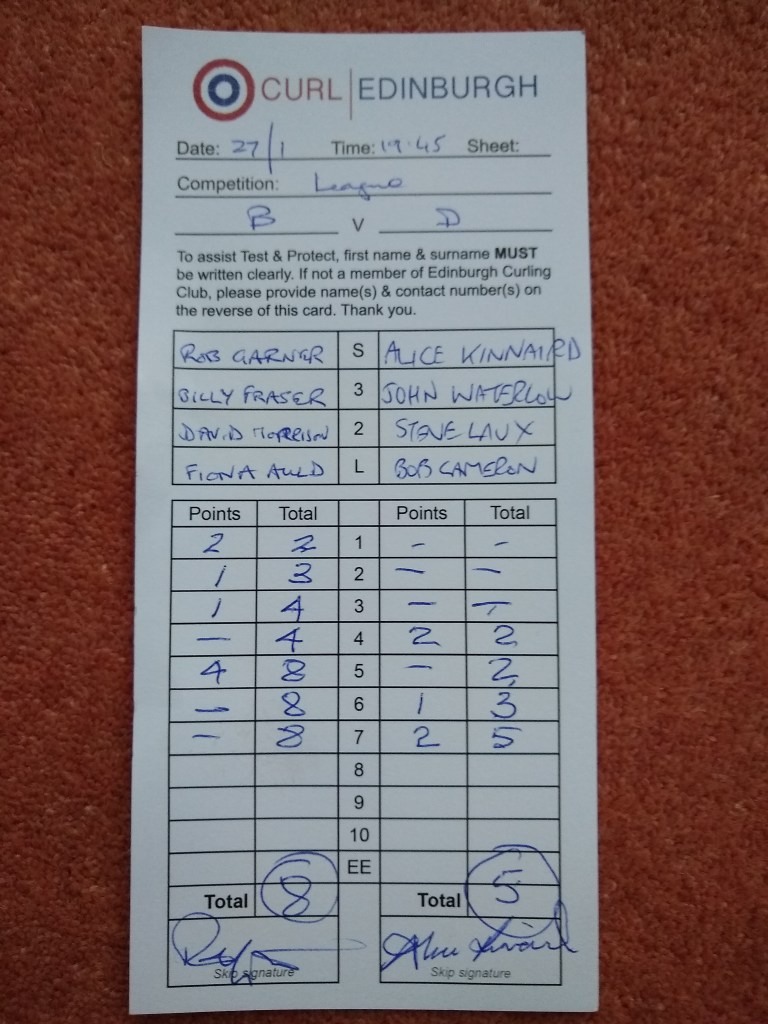 CURL | EDINBURGH
Date: 27/1 Time: 19:45 Sheet:
Competition: League
B V D
To assist Test & Protect, first name & surname MUST
be written clearly. If not a member of Edinburgh Curling
Club, please provide name(s) & contact number(s) on
the reverse of this card. Thank you.
ROB GARNER S ALICE KINNAIRD
BILLY FRASER 3 JOHN WATERLOW
DAVID MORRISON 2 STEVE LAUX
FIONA AULD L BOB CAMERON
Points Total Points Total
2 2 1 - -
1 3 2 - -
1 4 3 - -
- 4 4 2 2
4 8 5 - 2
- 8 6 1 3
- 8 7 2 5
8
9
10
EE
Total 8 Total 5
Skip signature Skip signature